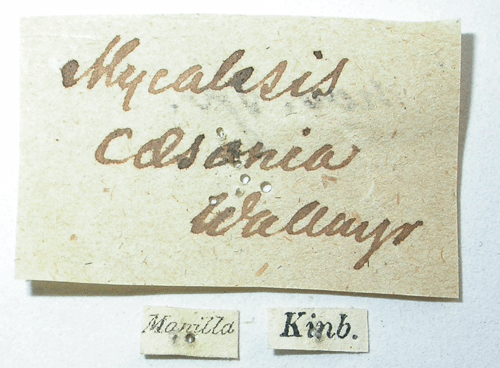 Mycalesis
Cæsonia
Wallengr
Manilla
Kinb.